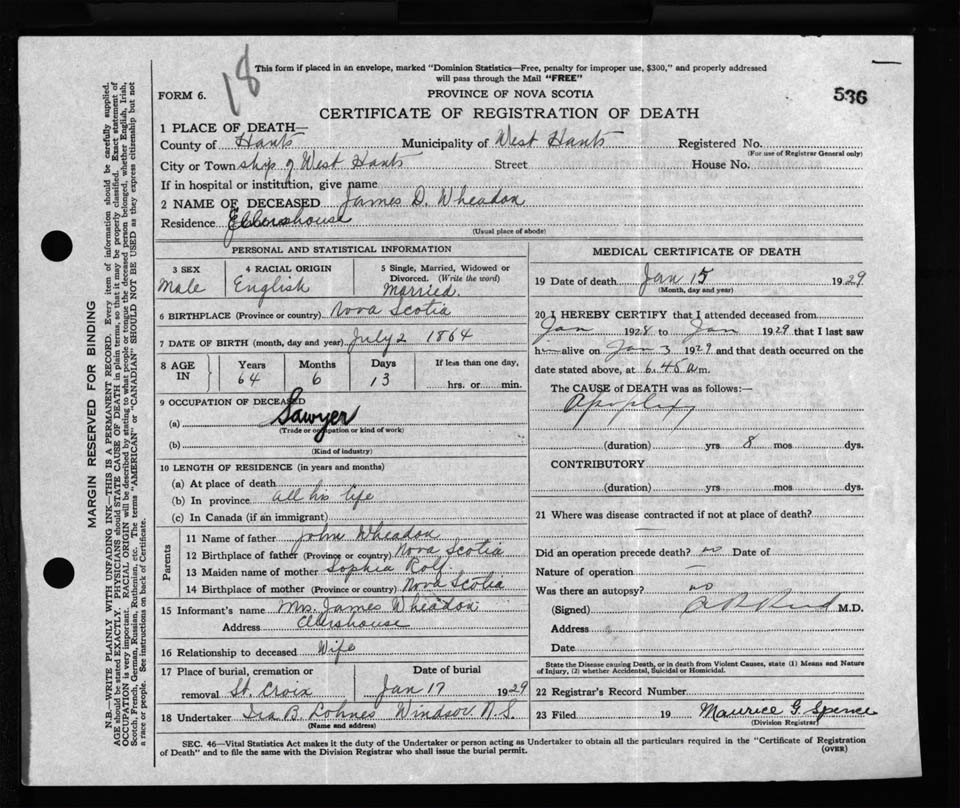 18
This form if placed in an envelope, marked "Dominion Statistics—Free, penalty for improper use, $300," and properly addressed
will pass through the Mail "FREE"
FORM 6.
PROVINCE OF NOVA SCOTIA
536
CERTIFICATE OF REGISTRATION OF DEATH
1 PLACE OF DEATH—
County of Hants Municipality of West Hants Registered No.
(For use of Registrar General only)
City or Town ship of West Hants Street House No.
If in hospital or institution, give name
2 NAME OF DECEASED James D. Wheadon
Residence Ellershouse
(Usual place of abode)
PERSONAL AND STATISTICAL INFORMATION
3 SEX
Male
4 RACIAL ORIGIN
English
5 Single, Married, Widowed or
Divorced. (Write the word)
Married.
6 BIRTHPLACE (Province or country) Nova Scotia
7 DATE OF BIRTH (month, day and year) July 2 1864
8 AGE IN
Years Months Days If less than one day,
64 6 13 hrs. or min.
9 OCCUPATION OF DECEASED
(a) Sawyer
(Trade or occupation or kind of work)
(b)
(Kind of industry)
10 LENGTH OF RESIDENCE (in years and months)
(a) At place of death
(b) In province all his life
(c) In Canada (if an immigrant)
Parents
11 Name of father John Wheadon
12 Birthplace of father (Province or country) Nova Scotia
13 Maiden name of mother Sophia Rolf
14 Birthplace of mother (Province or country) Nova Scotia
15 Informant's name Mrs. James Wheadon
Address Ellershouse
16 Relationship to deceased Wife
17 Place of burial, cremation or Date of burial
removal St. Croix Jan 17 1929
18 Undertaker Ira B. Lohnes Windsor N.S.
(Name and address)
MEDICAL CERTIFICATE OF DEATH
19 Date of death Jan 15 1929
(Month, day and year)
20 I HEREBY CERTIFY that I attended deceased from
Jan 1928 to Jan 1929 that I last saw
him alive on Jan 3 1929 and that death occurred on the
date stated above, at 6.45 a.m.
The CAUSE of DEATH was as follows:—
Apoplexy
(duration) yrs 8 mos dys.
CONTRIBUTORY
(duration) yrs. mos. dys.
21 Where was disease contracted if not at place of death?
—
Did an operation precede death? no Date of
Nature of operation —
Was there an autopsy? no
(Signed) M.D.
Address
Date
State the Disease causing Death, or in death from Violent Causes, state (1) Means and Nature
of Injury, (2) whether Accidental, Suicidal or Homicidal.
22 Registrar's Record Number
23 Filed 19 Maurice G. Spence
(Division Registrar)
SEC. 46—Vital Statistics Act makes it the duty of the Undertaker or person acting as Undertaker to obtain all the particulars required in the "Certificate of Registration
of Death" and to file the same with the Division Registrar who shall issue the burial permit.
(OVER)
MARGIN RESERVED FOR BINDING
N.B.—WRITE PLAINLY WITH UNFADING INK—THIS IS A PERMANENT RECORD. Every item of information should be carefully supplied.
AGE should be stated EXACTLY. PHYSICIANS should STATE CAUSE OF DEATH in plain terms, so that it may be properly classified. Exact statement of
OCCUPATION is very important. RACIAL ORIGIN will be described by stating to what people or tongue the deceased person belonged, whether English, Irish,
Scotch, French, German, Russian, Ruthenian, etc. The terms "AMERICAN" or "CANADIAN" SHOULD NOT BE USED as they express citizenship but not
a race or people. See instructions on back of Certificate.